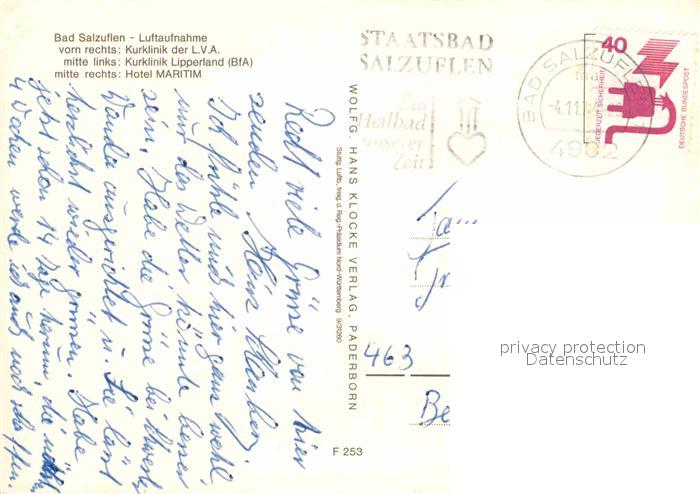 Bad Salzuflen - Luftaufnahme
vorn rechts: Kurklinik der L.V.A.
mitte links: Kurklinik Lipperland (BfA)
mitte rechts: Hotel MARITIM
STAATSBAD
SALZUFLEN
ein
Heilbad
unserer
Zeit
BAD SALZUFLEN
-4.11.
4902
40
JEDERZEIT SICHERHEIT
DEUTSCHE BUNDESPOST
Recht viele Grüsse von hier
senden Heinz
Ich fühle mich hier ganz wohl
nur das Wetter könnte besser
sein. Habe die Grüsse bei
Wanda ausgerichtet u. Sie lässt
herzlichst wieder grüssen. Habe
jetzt schon 14 Tage herum, die
4 Wochen werde ich auch noch
WOLFG. HANS KLOCKE VERLAG, PADERBORN
Stuttg. Luftb. freig. d. Reg.-Präsidium Nord-Württemberg 9/31260
463
Be
F 253
privacy protection
Datenschutz